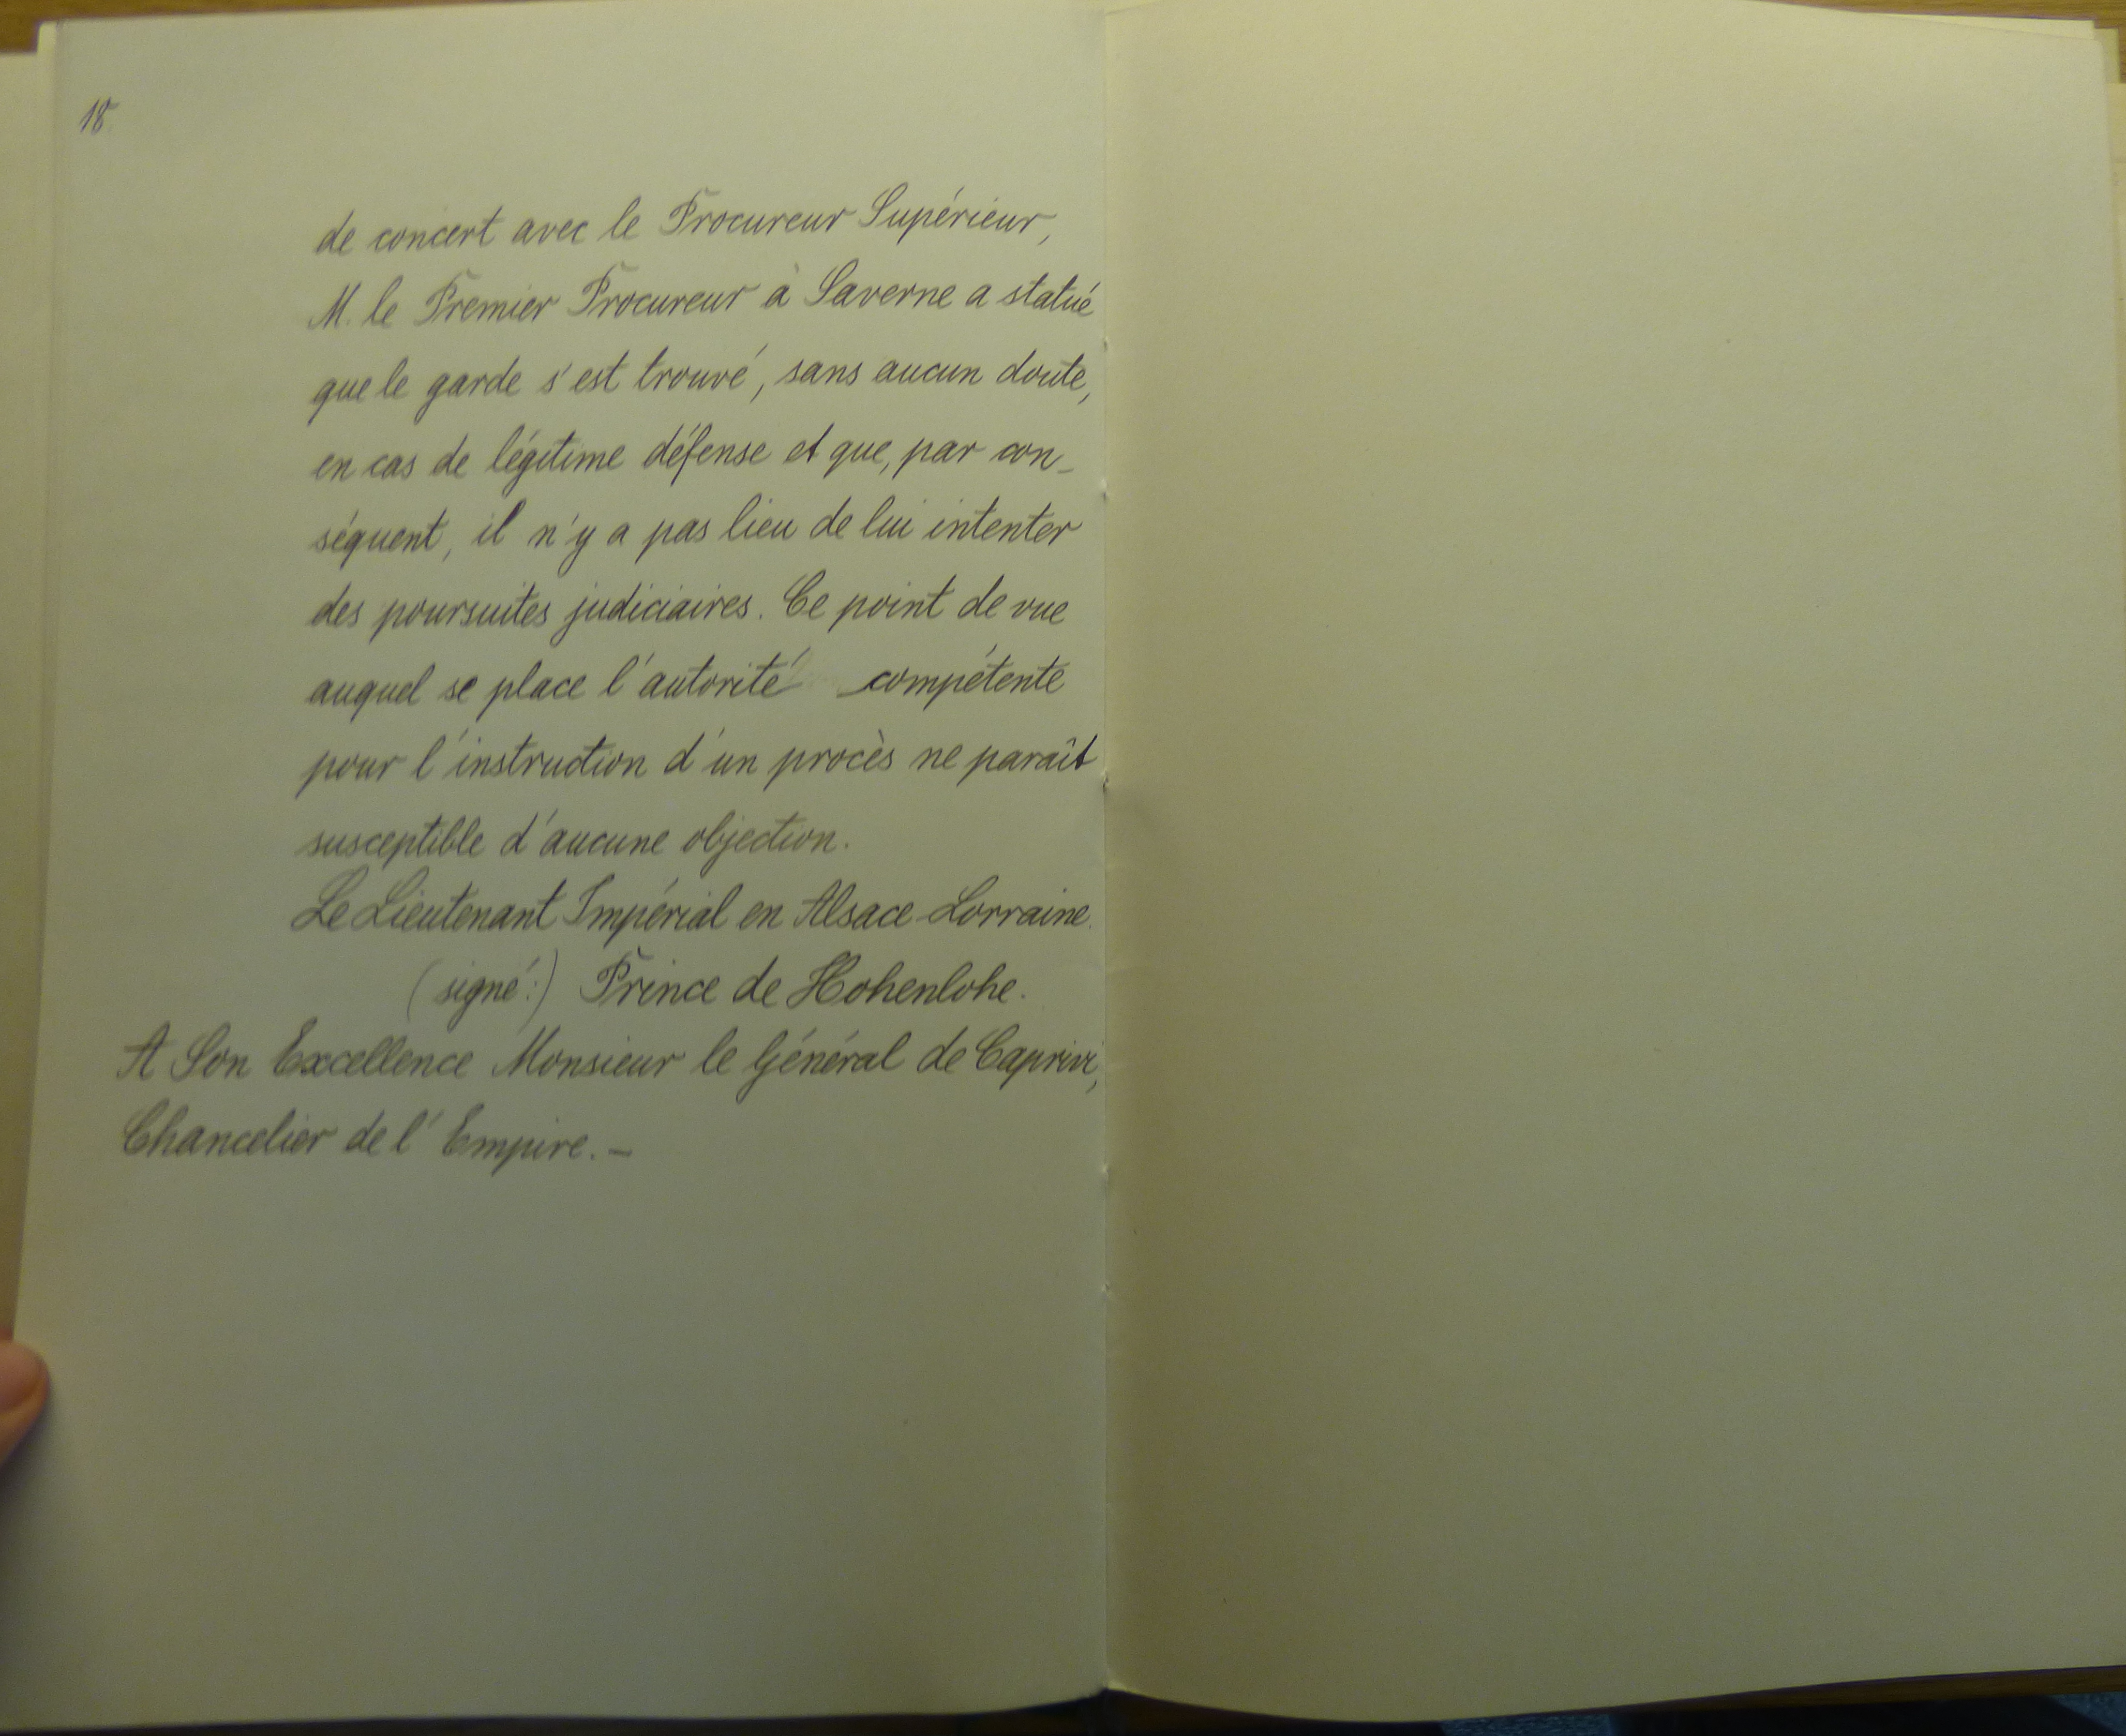 18
de concert avec le Procureur Supérieur,
M. le Premier Procureur à Saverne a statué
que le garde s'est trouvé, sans aucun doute,
en cas de légitime défense et que, par con-
séquent, il n'y a pas lieu de lui intenter
des poursuites judiciaires. Ce point de vue
auquel se place l'autorité compétente
pour l'instruction d'un procès ne paraît
susceptible d'aucune objection.
Le Lieutenant Impérial en Alsace-Lorraine.
(signé:) Prince de Hohenlohe.
A Son Excellence Monsieur le Général de Caprivi,
Chancelier de l'Empire. —